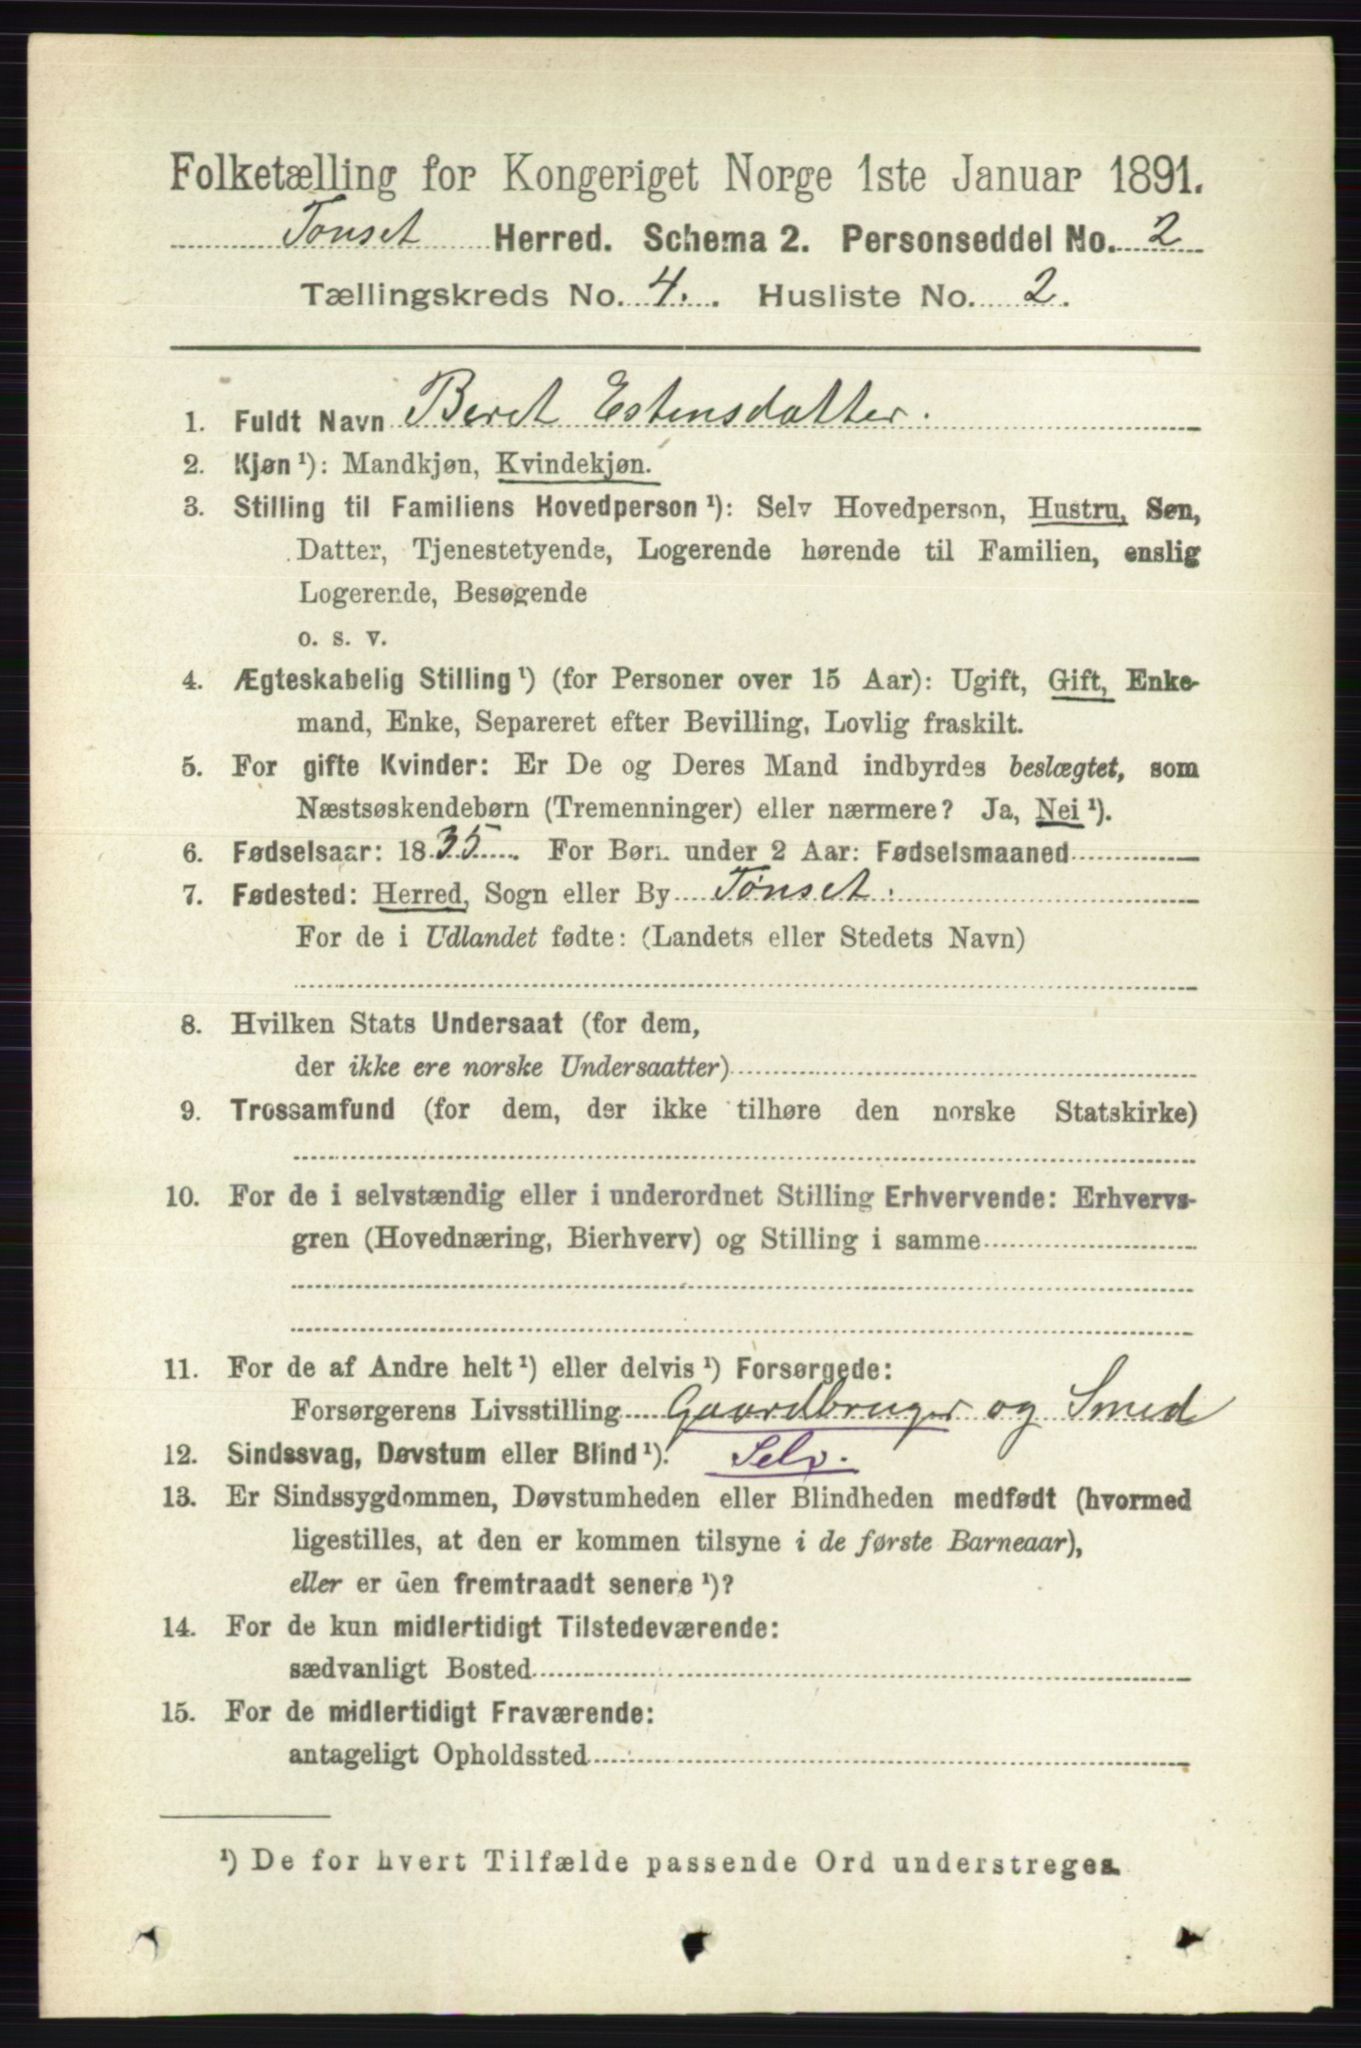 Folketælling for Kongeriget Norge 1ste Januar 1891.
Tønset Herred. Schema 2. Personseddel No. 2
Tællingskreds No. 4. Husliste No. 2.
1. Fuldt Navn Beret Estensdatter.
2. Kjøn¹): Mandkjøn, Kvindekjøn.
3. Stilling til Familiens Hovedperson¹): Selv Hovedperson, Hustru, Søn,
Datter, Tjenestetyende, Logerende hørende til Familien, enslig
Logerende, Besøgende
o. s. v.
4. Ægteskabelig Stilling¹) (for Personer over 15 Aar): Ugift, Gift, Enke-
mand, Enke, Separeret efter Bevilling, Lovlig fraskilt.
5. For gifte Kvinder: Er De og Deres Mand indbyrdes beslægtet, som
Næstsøskendebørn (Tremenninger) eller nærmere? Ja, Nei¹).
6. Fødselsaar: 1835. For Børn under 2 Aar: Fødselsmaaned
7. Fødested: Herred, Sogn eller By Tønset.
For de i Udlandet fødte: (Landets eller Stedets Navn)
8. Hvilken Stats Undersaat (for dem,
der ikke ere norske Undersaatter)
9. Trossamfund (for dem, der ikke tilhøre den norske Statskirke)
10. For de i selvstændig eller i underordnet Stilling Erhvervende: Erhvervs-
gren (Hovednæring, Bierhverv) og Stilling i samme
11. For de af Andre helt¹) eller delvis¹) Forsørgede:
Forsørgerens Livsstilling Gaardbruger og Smed
12. Sindssvag, Døvstum eller Blind¹). Selv.
13. Er Sindssygdommen, Døvstumheden eller Blindheden medfødt (hvormed
ligestilles, at den er kommen tilsyne i de første Barneaar),
eller er den fremtraadt senere¹)?
14. For de kun midlertidigt Tilstedeværende:
sædvanligt Bosted
15. For de midlertidigt Fraværende:
antageligt Opholdssted
¹) De for hvert Tilfælde passende Ord understreges.